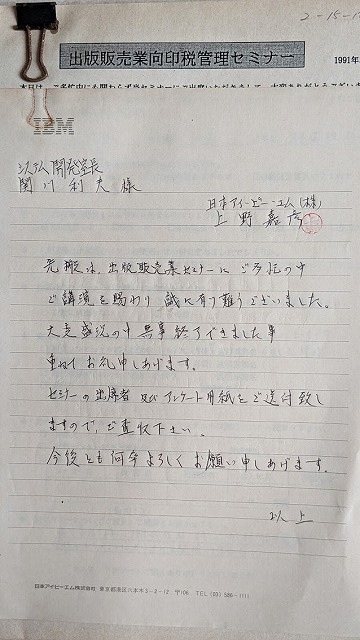 2-15-1
出版販売業向印税管理セミナー
1991年
IBM
システム開発室長
関川利夫様
日本アイ・ビー・エム(株)
上野嘉彦
先般は、出版販売業セミナーにご多忙の中
ご講演を賜わり誠に有り難うございました。
大変盛況の中無事終了できました事
重ねてお礼申しあげます。
セミナーの出席者及びアンケート用紙をご送付致し
ますので、ご査収下さい。
今後とも何卒よろしくお願い申しあげます。
以上
日本アイビーエム株式会社 東京都港区六本木3-2-12 〒106 TEL (03) 586-1111